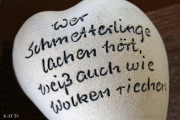 wer
Schmetterlinge
lachen hört,
weiß auch wie
Wolken riechen